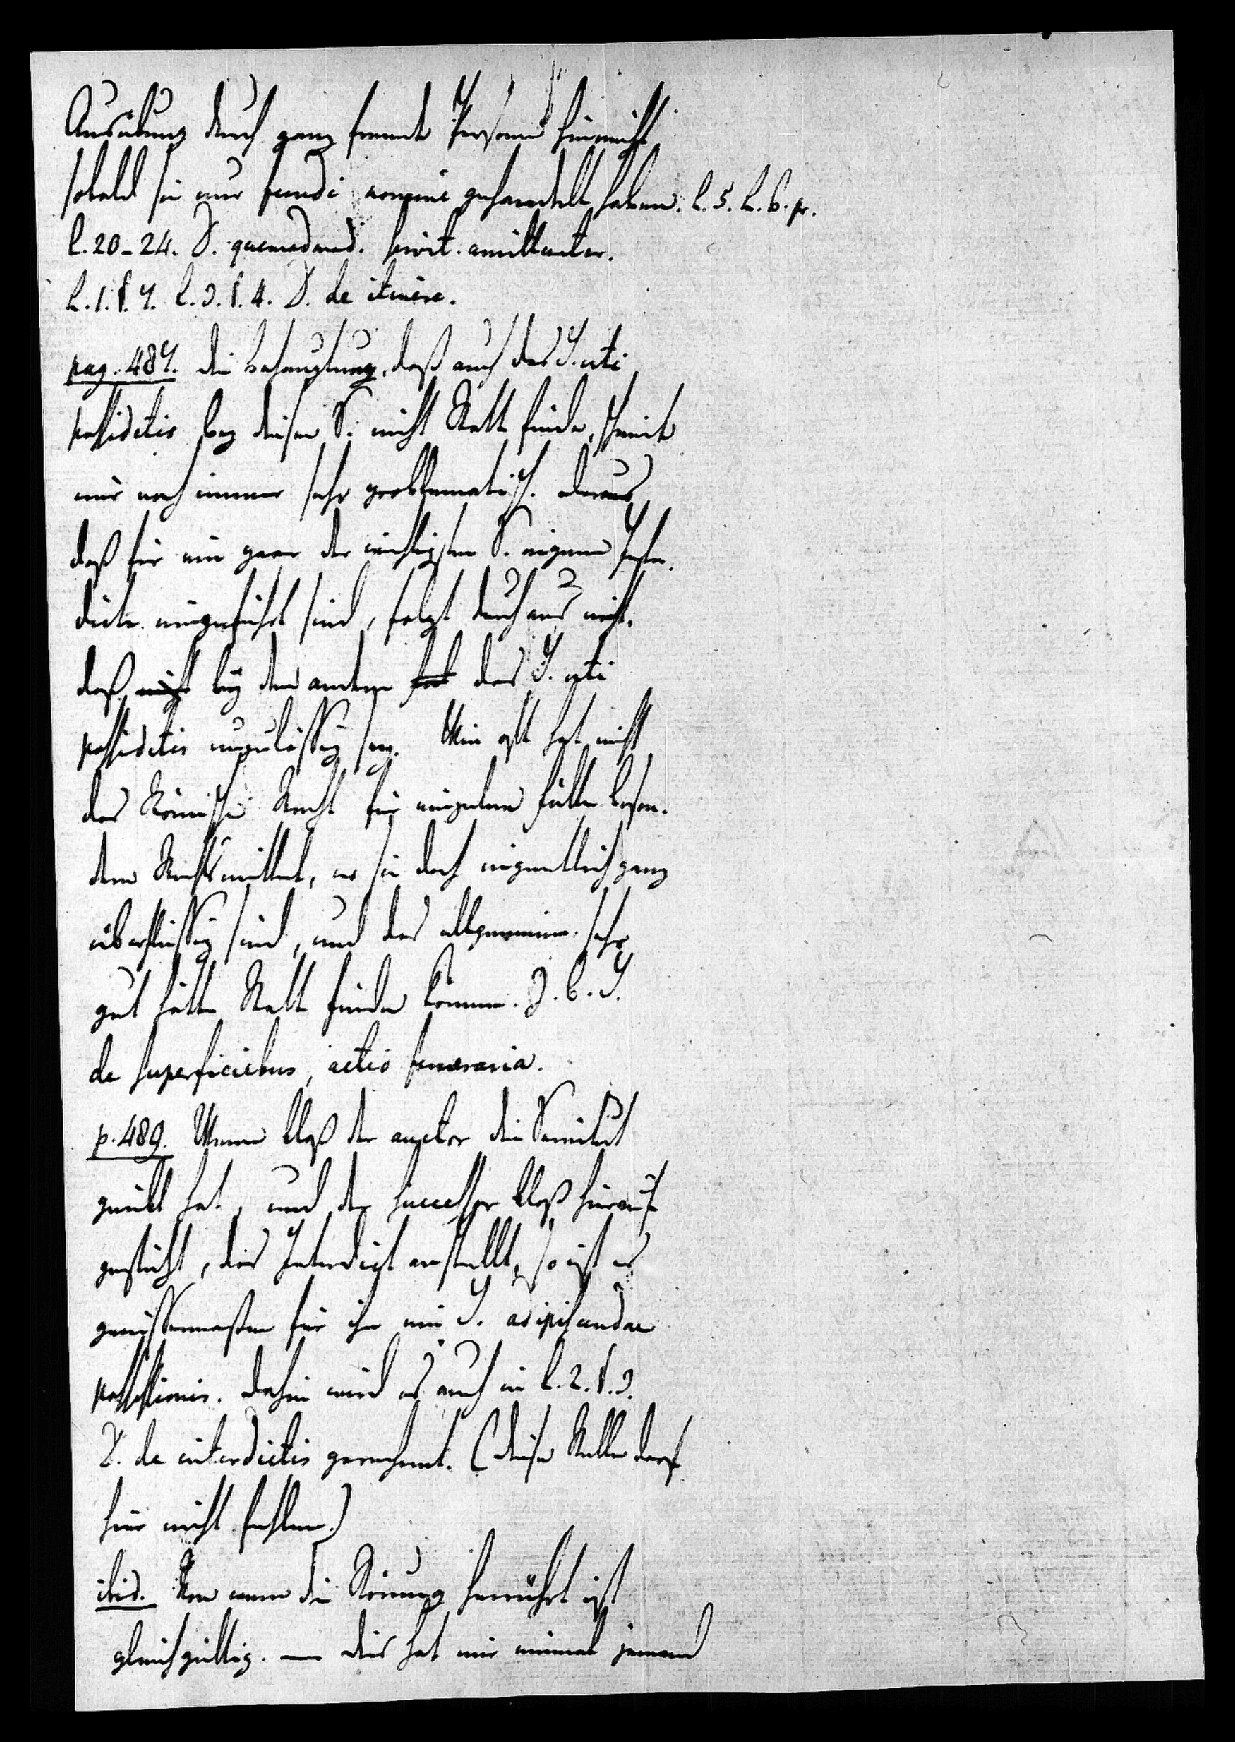 Ausübung durch ganz fremde Personen hinreicht
sobald sie nur fundi nomine gehandelt haben. l. 5. l. 6. pr.
l. 20-24. D. quemadmod. servit. amittuntur.
l. 1. §. 7. l. 3. §. 4. D. de itinere.
pag. 487. die Behauptung, daß auch das I. uti
possidetis bey diesen S. nicht Statt finde, scheint
mir noch immer sehr problematisch. daraus
daß für ein paar der wichtigsten S. eigene Inter-
dicte eingeführt sind, folgt durchaus nicht.
daß nicht bey den andern das I. uti
possidetis unzulässig sey. Wie oft hat nicht
das Römische Recht für einzelne Fälle beson-
dere Rechtsmittel, wo sie doch eigentlich ganz
überflüssig sind, und das allgemeine sehr
gut hätte Statt finden können. z. B. I.
de superficiebus, actio funeraria.
p. 489. Wenn bloß der auctor die Servitut
geübt hat, und der successor bloß hierauf
gestützt, das Interdict anstellt, so ist es
gewissermaßen für ihn ein I. adipiscendae
possessionis. dahin wird es auch in l. 2. §. 3.
D. de interdictis gerechnet. (diese Stelle darf
hier nicht fehlen.)
ibid. Von wem die Störung herrührt ist
gleichgültig. — dies hat mir einmal jemand